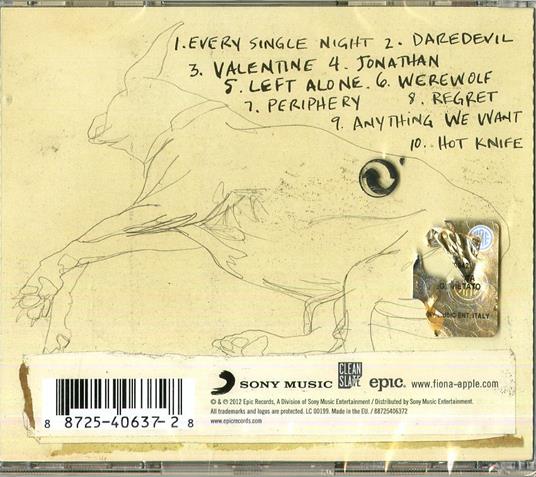 1. EVERY SINGLE NIGHT 2. DAREDEVIL
3. VALENTINE 4. JONATHAN
5. LEFT ALONE. 6. WEREWOLF
7. PERIPHERY 8. REGRET
9. ANYTHING WE WANT
10. HOT KNIFE
VIETATO
ENT. ITALY
SONY MUSIC CLEAN SLATE epic. www.fiona-apple.com
℗ & © 2012 Epic Records, A Division of Sony Music Entertainment / Distributed by Sony Music Entertainment.
All trademarks and logos are protected. LC 00199. Made in the EU. / 88725406372
www.epicrecords.com
8 8725-40637-2 8